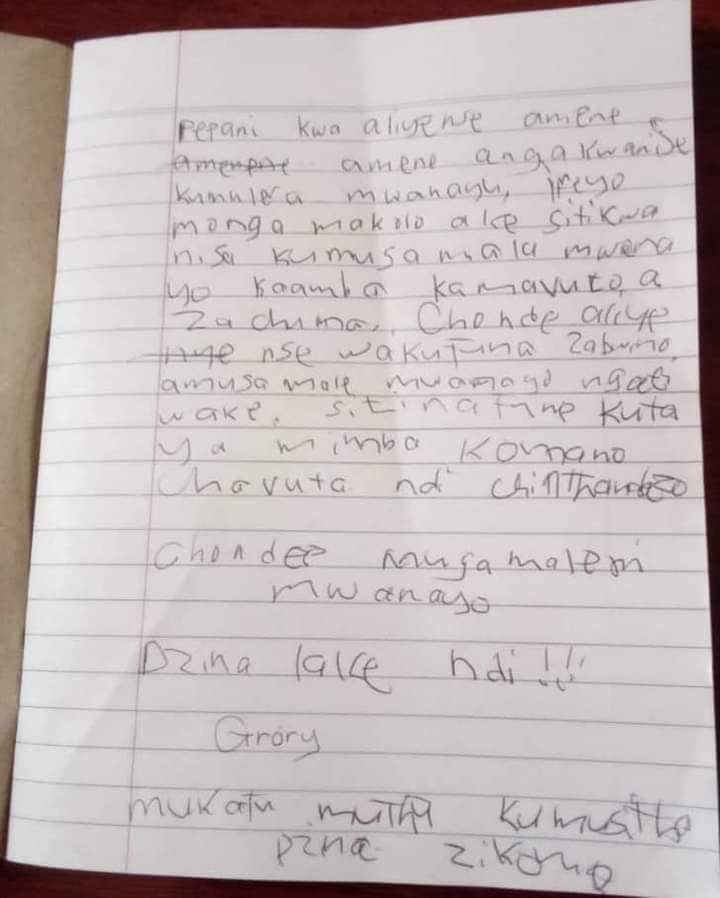 Pepani kwa aliyense amene
amene angakwanise
Kumulera mwanayu, ifeyo
monga makolo ake sitikwa
nisa kumusamala mwana
yo kaamba kamavuto a
zachuma. Chonde aliye
nse wakufuna zabwino
amusamale mwanayo ngati
wake. sitinafune kuta
ya mimba Komano
Chavuta ndi chinthandizo
Chondee musamaleni
mwanayo
Dzina lake ndi!!!
Grory
mukatu mutha kumusitha
Dzina zikomo